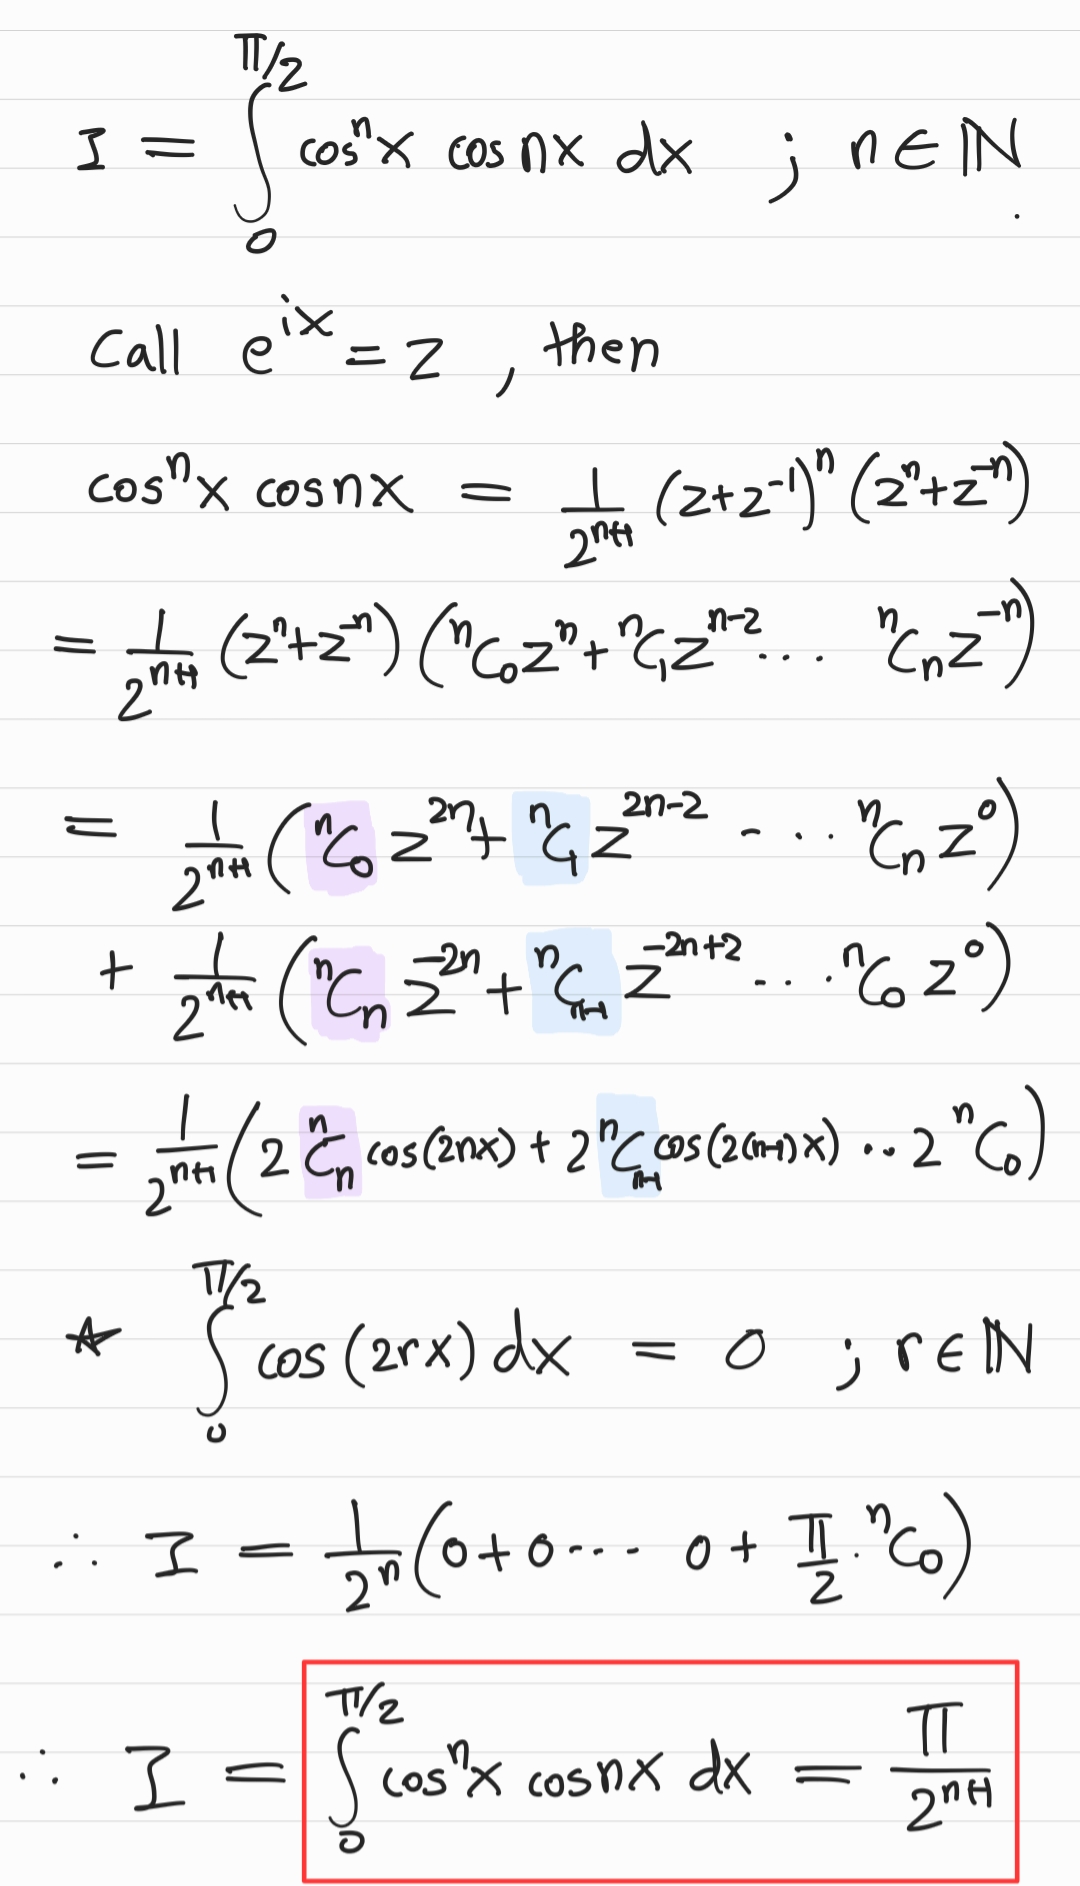 I = ∫₀^{π/2} cosⁿx cos nx dx ; n ∈ ℕ.
Call e^{ix} = z , then
cosⁿx cos nx = 1/2^{n+1} (z+z⁻¹)ⁿ (zⁿ+z⁻ⁿ)
= 1/2^{n+1} (zⁿ+z⁻ⁿ) (ⁿC₀zⁿ + ⁿC₁z^{n-2} ... ⁿCₙz⁻ⁿ)
= 1/2^{n+1} (ⁿC₀ z^{2n} + ⁿC₁ z^{2n-2} .... ⁿCₙ z⁰)
+ 1/2^{n+1} (ⁿCₙ z^{-2n} + ⁿC_{n-1} z^{-2n+2} .... ⁿC₀ z⁰)
= 1/2^{n+1} (2 ⁿCₙ cos(2nx) + 2 ⁿC_{n-1} cos(2(n-1)x) .. 2 ⁿC₀)
★ ∫₀^{π/2} cos(2rx) dx = 0 ; r ∈ ℕ
∴ I = 1/2ⁿ (0+0... 0 + π/2 . ⁿC₀)
∴ I = ∫₀^{π/2} cosⁿx cos nx dx = π/2^{n+1}